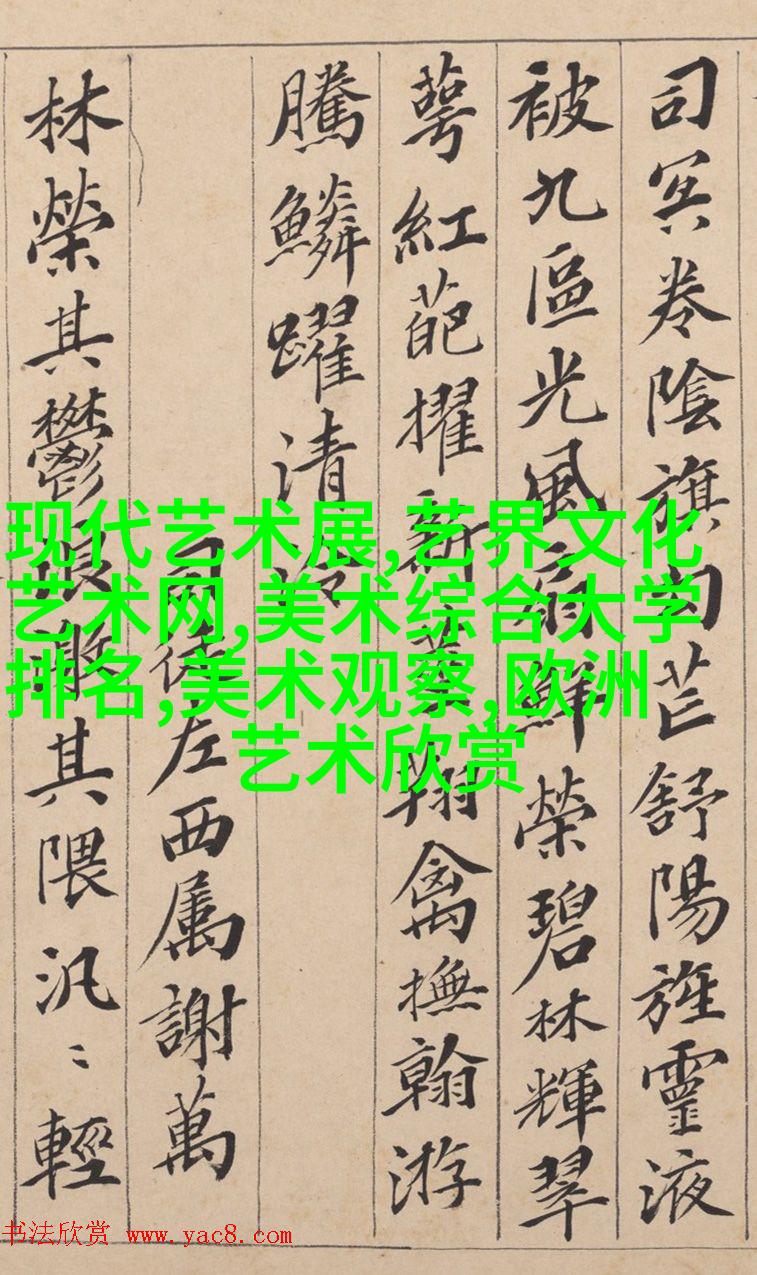 司冥卷陰旗句芒舒陽旌靈液
被九區光風扇鮮榮碧林輝翠
萼紅葩擢新莖翔禽撫翰游
騰鱗躍清泠
司徒左西属謝萬
林榮其鬱浪激其隈汎〻輕
现代艺术展,艺界文化
艺术网,美术综合大学
排名,美术观察,欧洲
艺术欣赏
书法欣赏 www.yac8.com